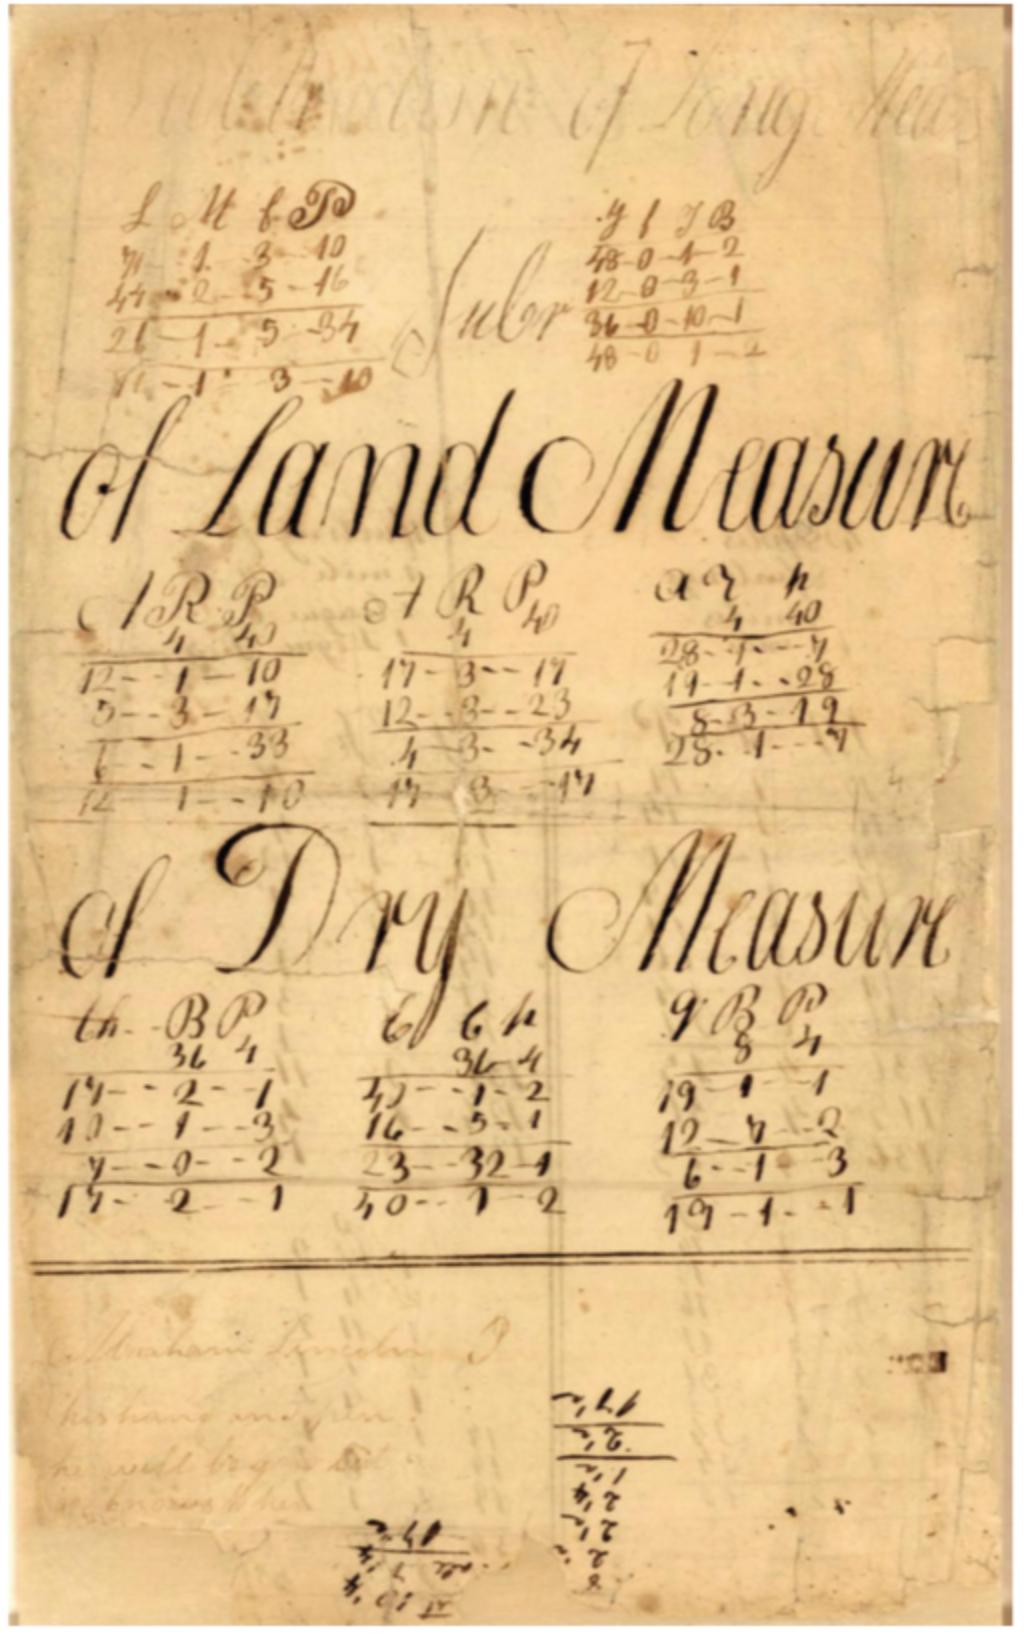 of Long Mea
L M f P
71 1 3 10
44 2 5 16
26 1 5 34
71 1 3 10
Subr
Y f I B
48-0-1-2
12-0-3-1
36-0-10-1
48-0 1-2
of Land Measure
A R P
4 40
12--1-10
5--3-17
6--1--33
12 1--10
A R P
4 40
17-3--17
12--3--23
4-3--34
17 3--17
a r p
4 40
28-1--7
19-1--28
8-3-19
28-1--7
of Dry Measure
Ch.-B P
36 4
17--2-1
10--1--3
7--0--2
17-2--1
C p
36 4
40--1-2
16--5-1
23--32-1
40--1-2
q B P
8 4
19-1-1
12-7-2
6--1-3
19-1--1
Abraham Lincoln
his hand and pen
he will be good but
god knows When
17½
2½
1½
2¼
2½
2
8
17½